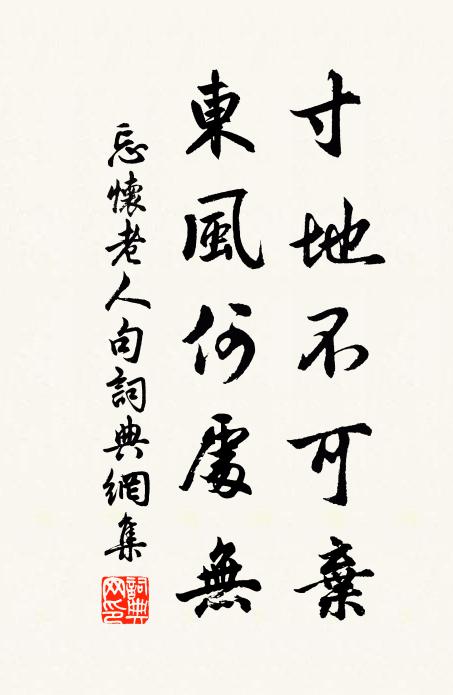 寸地不可棄
東風何處無
忘懷老人句詞典網集
詞典網印